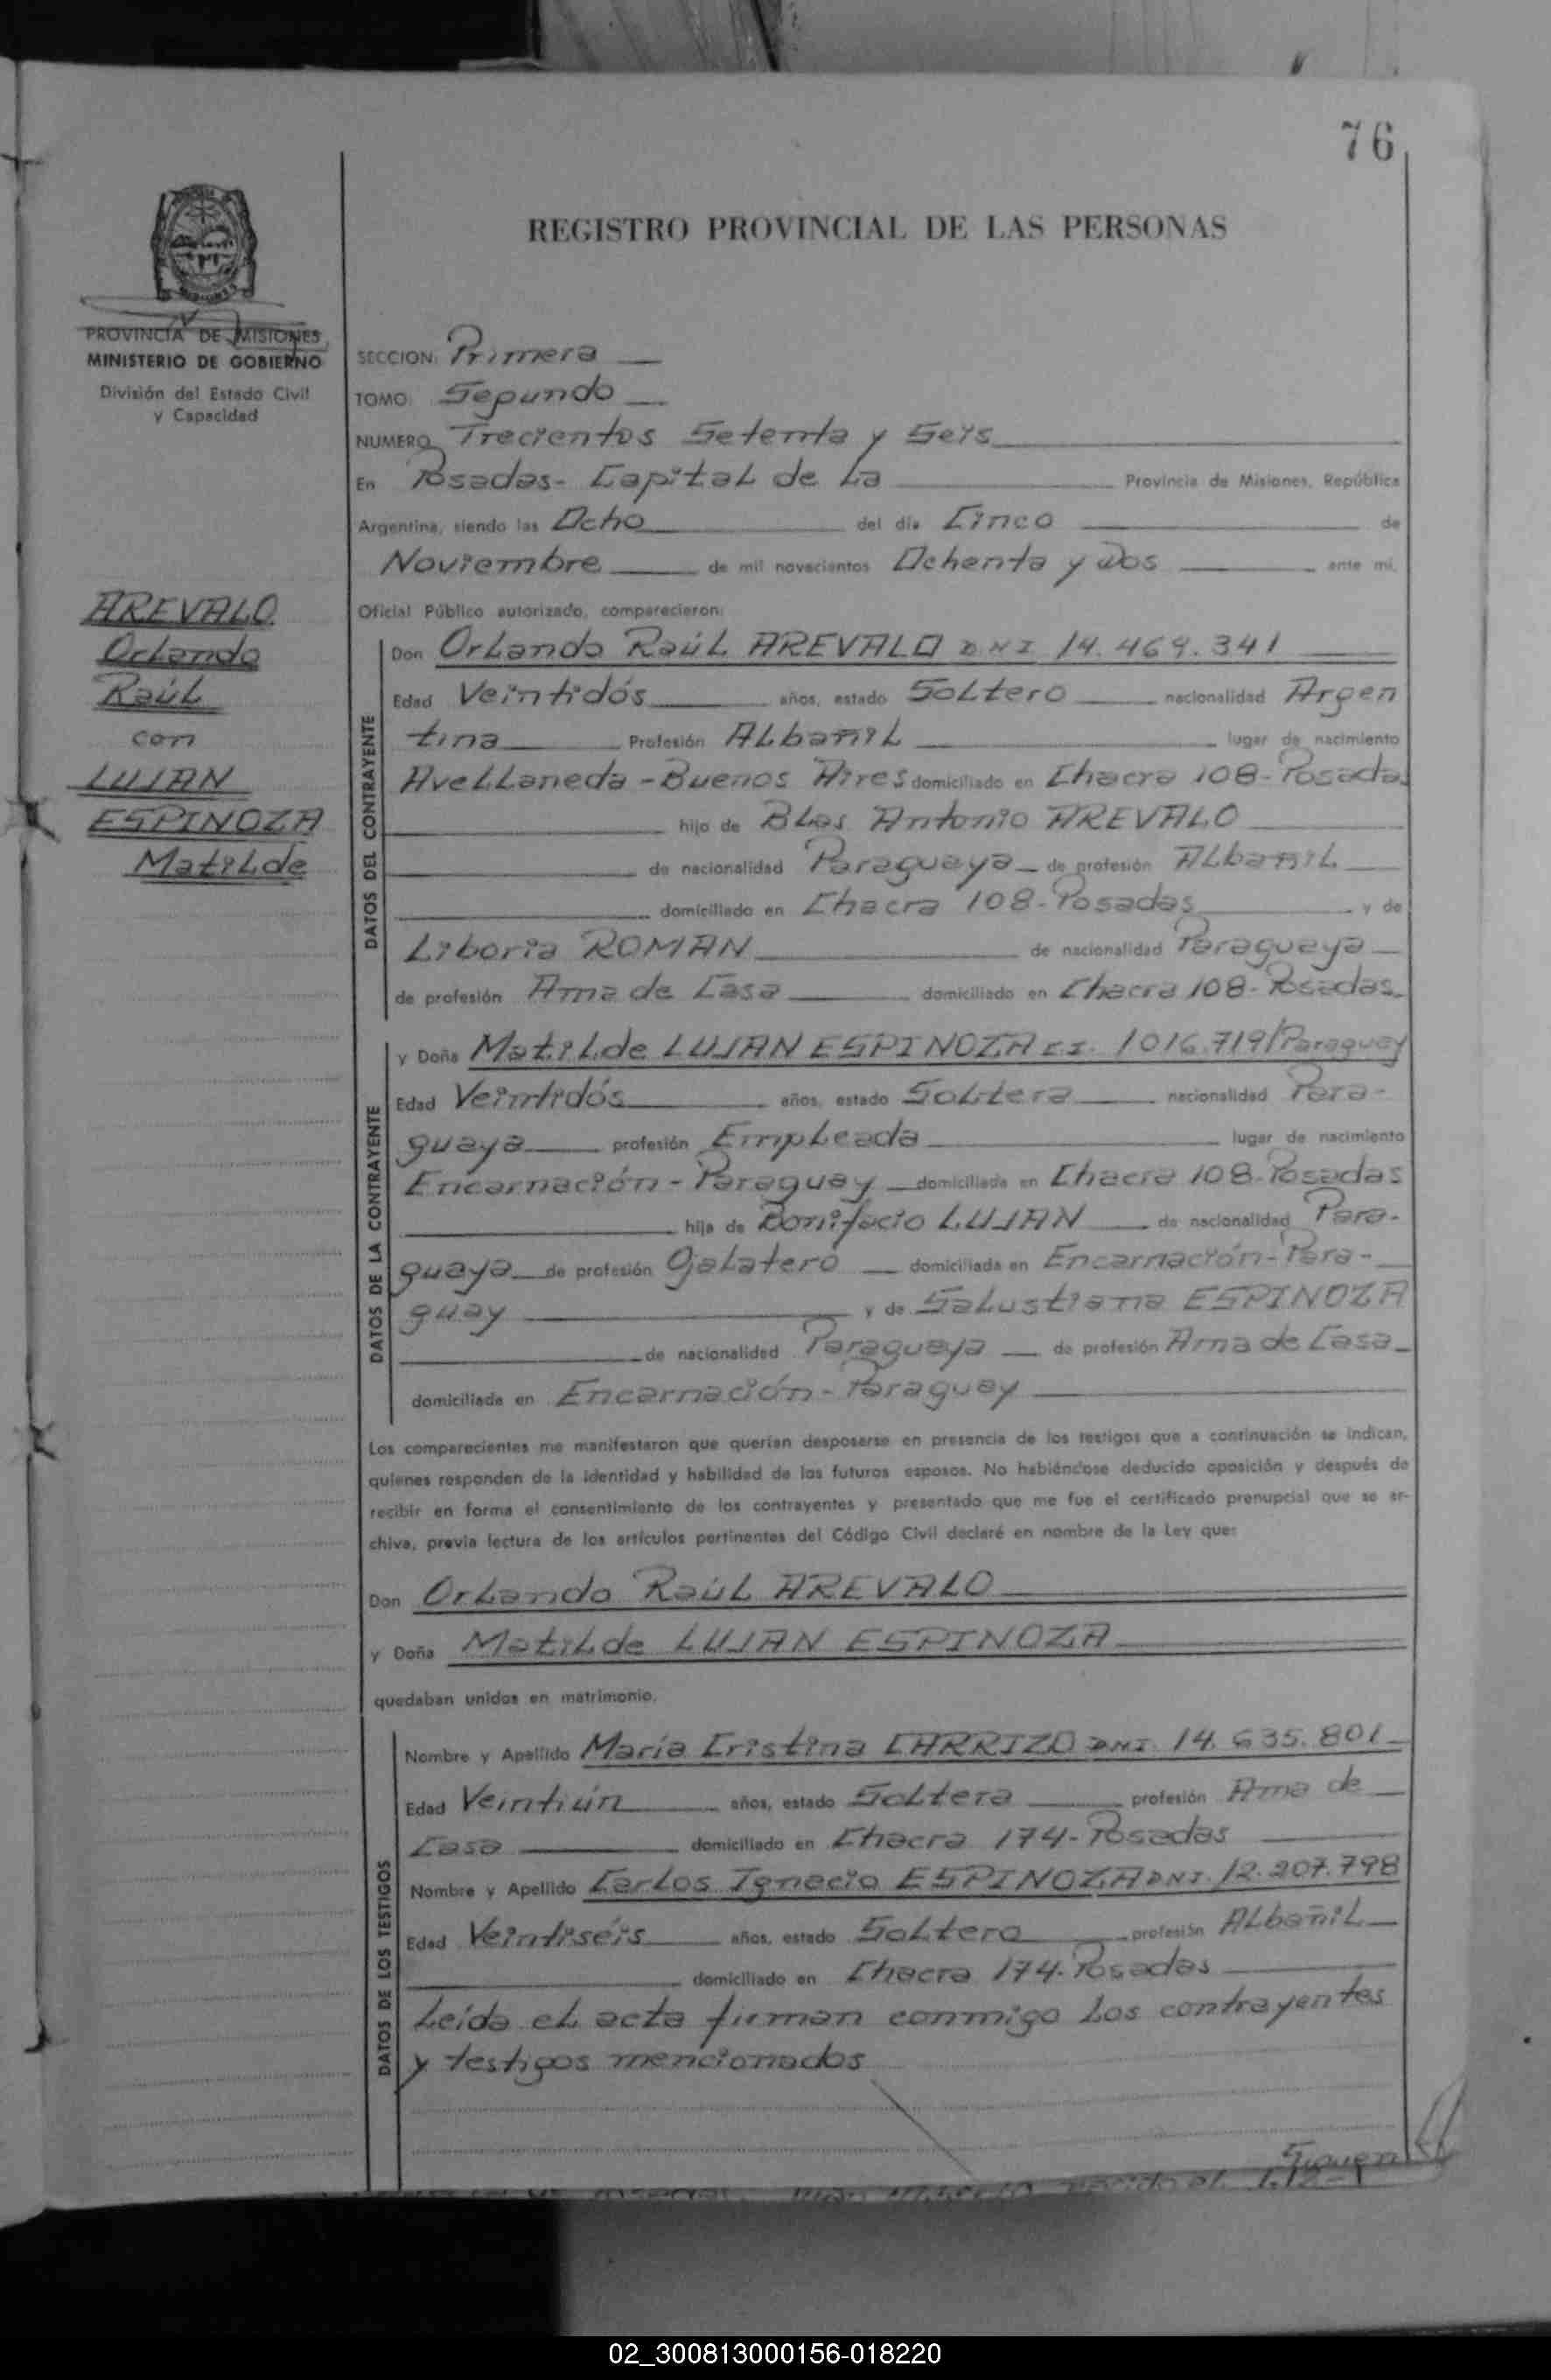 76
REGISTRO PROVINCIAL DE LAS PERSONAS
PROVINCIA DE MISIONES
MINISTERIO DE GOBIERNO
División del Estado Civil
y Capacidad
AREVALO
Orlando
Raúl
con
LUJAN
ESPINOZA
Matilde
SECCION: Primera
TOMO: Segundo
NUMERO Trecientos Setenta y Seis
En Posadas - Capital de La Provincia de Misiones, República
Argentina, siendo las Ocho del día Cinco de
Noviembre de mil novecientos Ochenta y Dos ante mí,
Oficial Público autorizado, comparecieron:
DATOS DEL CONTRAYENTE
Don Orlando Raúl AREVALO DNI 14.469.341
Edad Veintidós años, estado Soltero nacionalidad Argen
tina Profesión Albañil lugar de nacimiento
Avellaneda - Buenos Aires domiciliado en Chacra 108 - Posadas
hijo de Blas Antonio AREVALO
de nacionalidad Paraguaya de profesión Albañil
domiciliado en Chacra 108 - Posadas y de
Liboria ROMAN de nacionalidad Paraguaya
de profesión Ama de Casa domiciliado en Chacra 108 - Posadas
DATOS DE LA CONTRAYENTE
y Doña Matilde LUJAN ESPINOZA C.I. 1016.719/Paraguay
Edad Veintidós años, estado Soltera nacionalidad Para-
guaya profesión Empleada lugar de nacimiento
Encarnación - Paraguay domiciliada en Chacra 108 - Posadas
hija de Bonifacio LUJAN de nacionalidad Para-
guaya de profesión Ojalatero domiciliada en Encarnación - Para-
guay y de Salustiana ESPINOZA
de nacionalidad Paraguaya de profesión Ama de Casa
domiciliada en Encarnación - Paraguay
Los comparecientes me manifestaron que querían desposarse en presencia de los testigos que a continuación se indican,
quienes responden de la identidad y habilidad de los futuros esposos. No habiéndose deducido oposición y después de
recibir en forma el consentimiento de los contrayentes y presentado que me fue el certificado prenupcial que se ar-
chiva, previa lectura de los artículos pertinentes del Código Civil declaré en nombre de la Ley que:
Don Orlando Raúl AREVALO
y Doña Matilde LUJAN ESPINOZA
quedaban unidos en matrimonio.
DATOS DE LOS TESTIGOS
Nombre y Apellido María Cristina CARRIZO DNI. 14.635.801
Edad Veintiún años, estado Soltera profesión Ama de
Casa domiciliado en Chacra 174 - Posadas
Nombre y Apellido Carlos Ignacio ESPINOZA DNI. 12.207.798
Edad Veintiséis años, estado Soltero profesión Albañil
domiciliado en Chacra 174 - Posadas
Leída el acta firman conmigo los contrayentes
y testigos mencionados
Siguen
02_300813000156-018220